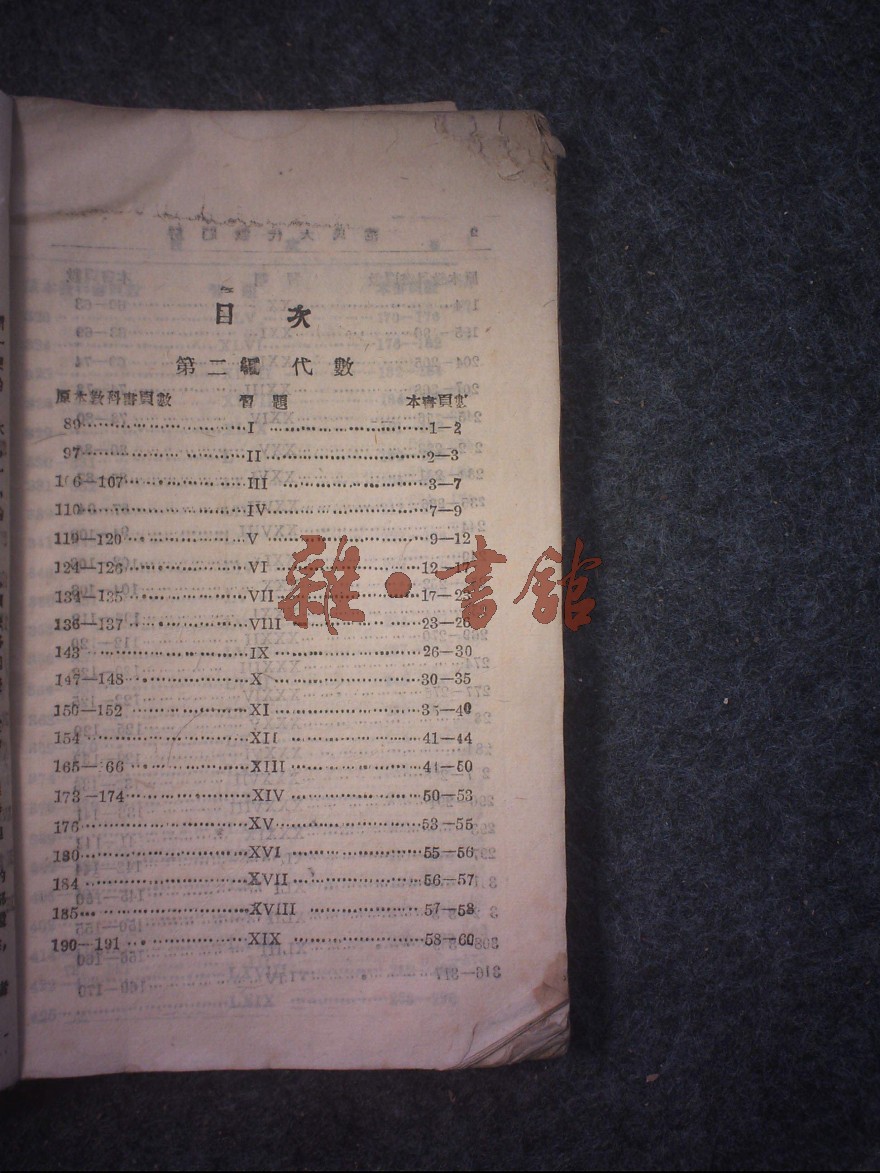 目 次
第二編 代數
原本教科書頁數 習題 本書頁數
89 I 1—2
97 II 2—3
106—107 III 3—7
110 IV 7—9
119—120 V 9—12
124—126 VI 12—17
134—135 VII 17—23
136—137 VIII 23—26
143 IX 26—30
147—148 X 30—35
150—152 XI 35—40
154 XII 41—44
165— 66 XIII 44—50
173—174 XIV 50—53
176 XV 53—55
180 XVI 55—56
184 XVII 56—57
185 XVIII 57—58
190—191 XIX 58—60
雜·書舘